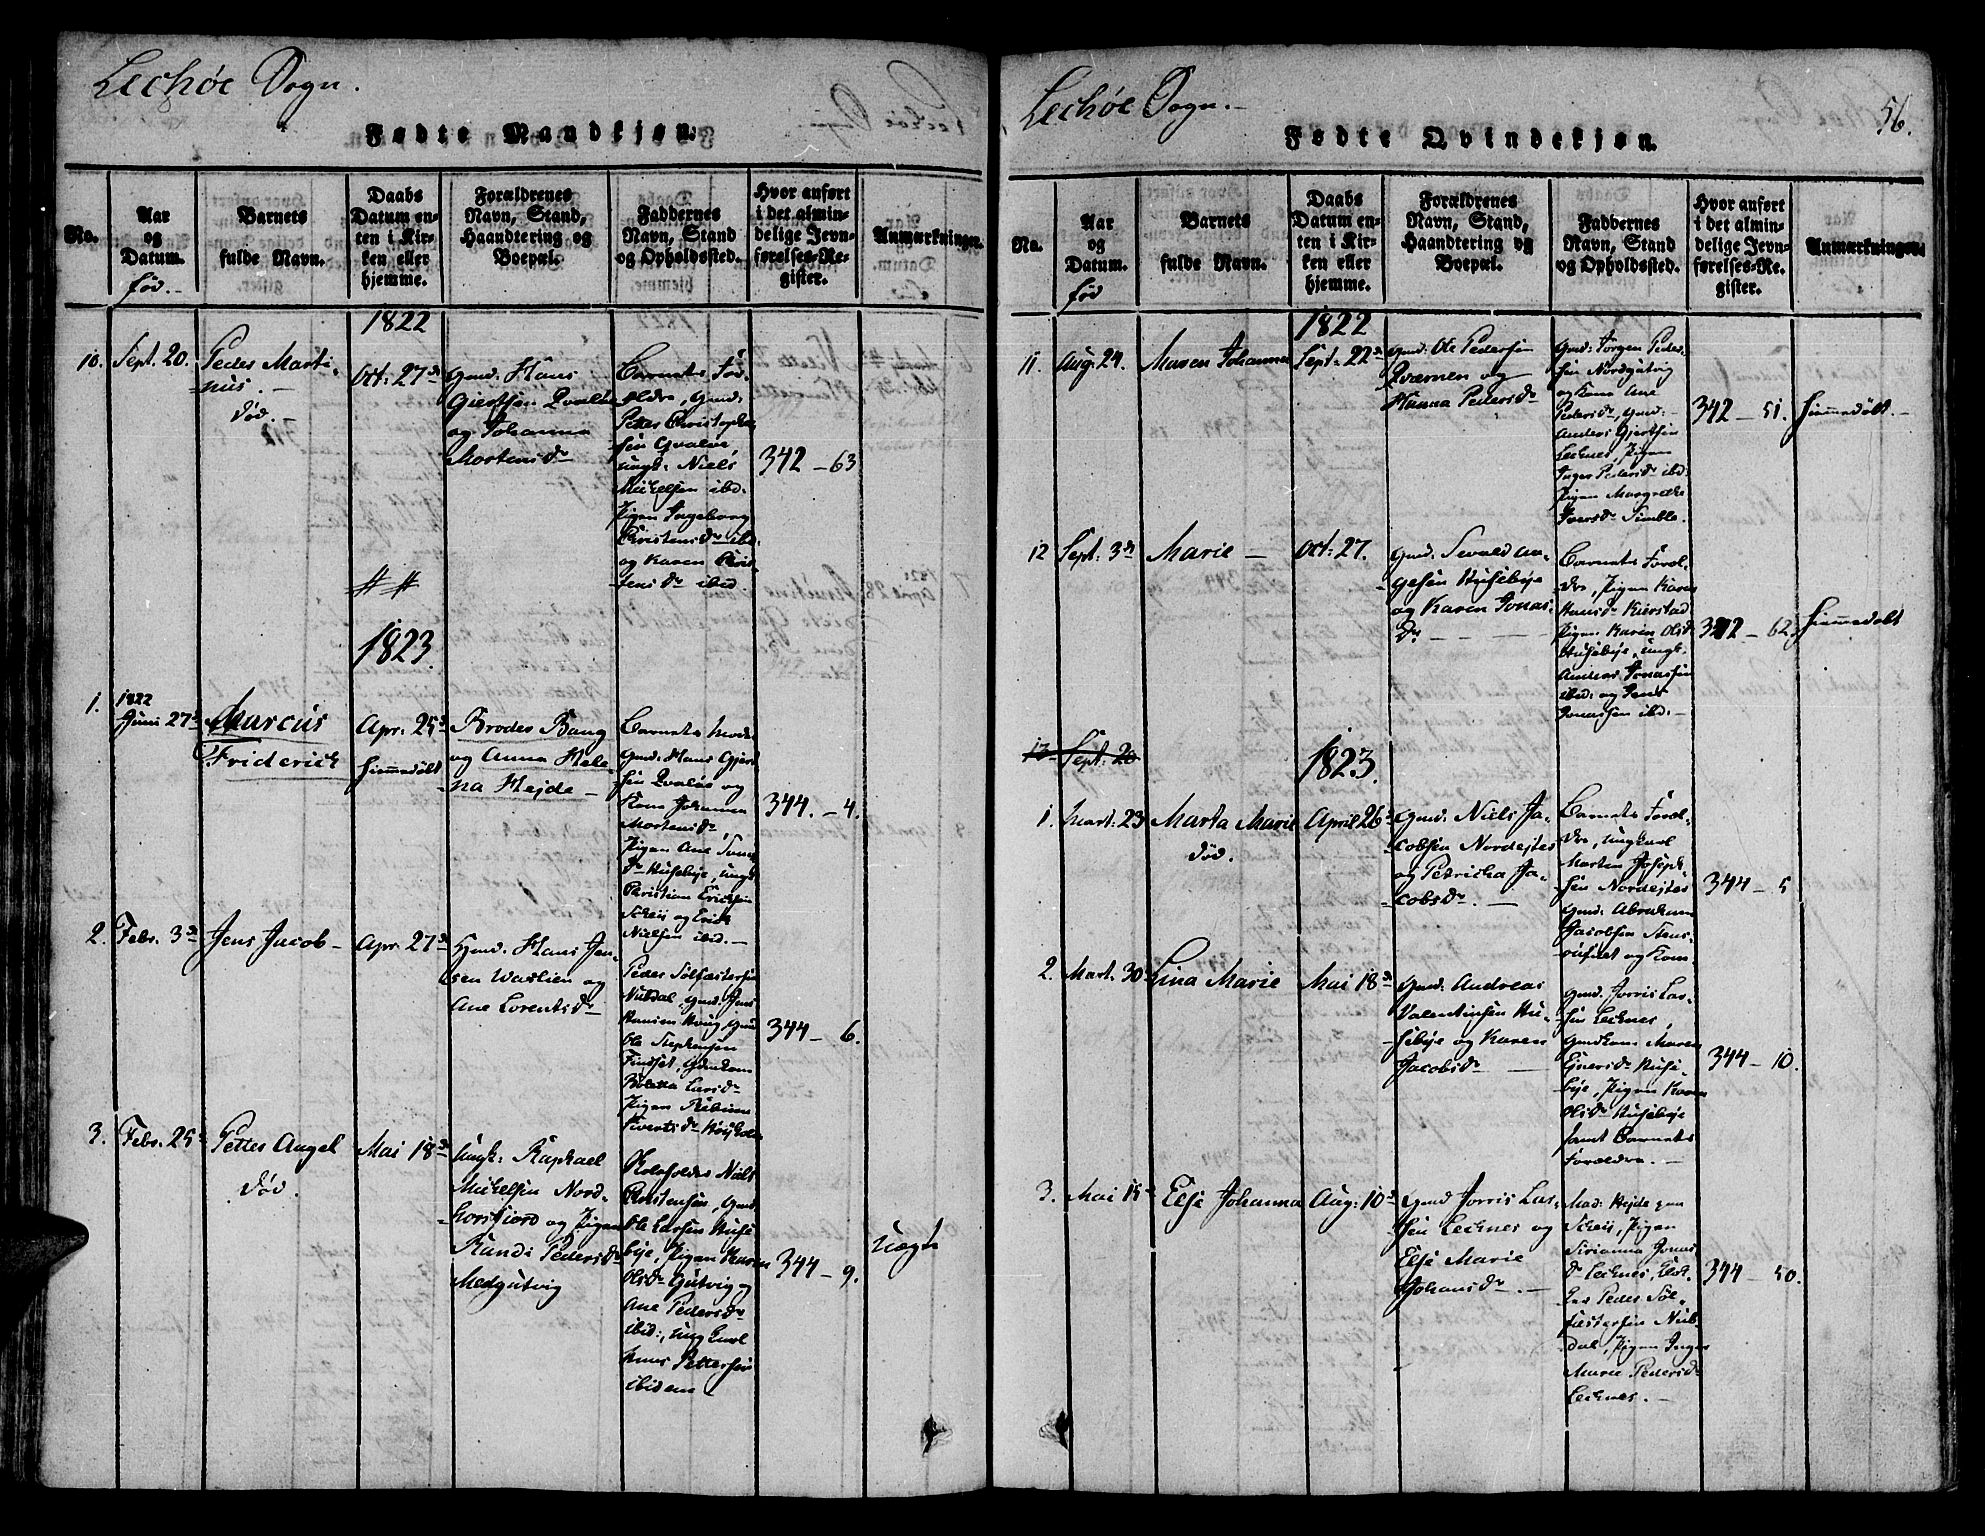 Leckøe Sogn.
Fødte Mandkjøn.
No.
Aar
og
Datum.
fød.
Barnets
fulde Navn.
Daabs
Datum en-
ten i Kir-
ken eller
hjemme.
Forældrenes
Navn, Stand,
Haandtering og
Boepæl.
Faddernes
Navn, Stand
og Opholdssted.
Hvor anført
i det almin-
delige Jevn-
førelses-Re-
gister.
Anmærkninger.
1822
10.
Sept. 20.
Peder Marti-
nus.
død.
Oct: 27de
Gmd: Hans
Giertsen Qvaløe
og Johanna
Mortensdr
Barnets For-
ældre, Gmd:
Petter Christophe
sen Qvaløe
Ungk: Niels
Mickelsen ibd.
Pigen Ingeborg
Christensdr ibd.
og Karen Chris-
tensdr ibid
342 – 63
1823.
1.
1822
Juni 27de
Marcus
Friderich
Apr: 25de
hiemmedøbt
Brodes Bang
og Anna Hele-
na Hejde –
Barnets Moder
Gmd: Hans Gjert
sen Qvaløe og
Kone Johanna
Mortensdr,
Pigen Ane
dr Husebye, Ungk
Christian Ericksen
og Erik
Nielsen ibid. –
344. – 4.
2.
Febr. 3de
Jens Jacob –
Apr. 27de
Gmd: Hans Jen-
sen Waslien og
Ane Lorentsdr
Peder Sølfæstersen
Nubdal, Gmd: Jens
Hansen Houg, Gmd
Ole Stephensen
Findset, Gmdkone
Larsdr
Pigen
Sivertsdr
344 – 6.
3.
Febr. 25de
Petter Angel
død.
Mai 18de
Ungk: Raphael
Mickelsen Nord-
horsfiord og Pigen
Randi Pedersdr
Medgutvig
Niels
Christensen, Gmd
Ole Larsen Huse
bye, Pigen Karen
Olsdr Gutvig og
Ane Pedersdr
ibid:, Ungkarl
Hans Pettersen
ibidem
344 – 9.
Uægte
Leckøe Sogn. –
56.
Fødte Qvindekjøn.
No.
Aar
og
Datum.
fød
Barnets
fulde Navn.
Daabs
Datum en-
ten i Kir-
ken eller
hjemme.
Forældrenes
Navn, Stand,
Haandtering og
Boepæl.
Faddernes
Navn, Stand
og Opholdssted.
Hvor anført
i det almin-
delige Jevn-
førelses-Re-
gister.
Anmærkninger.
1822
11.
Aug: 24.
Maren Johanna
Sept: 22de
Gmd: Ole Pedersen
Qværnen og
Hanna Pedersdr
Gmd: Jørgen Peder-
sen Nordgutvig
og Kone Ane
Pedersdr, Gmd:
Anders Gjertsen
Lecknes, Pigen
Inger Pedersdr ibd.
Pigen Margrethe
Iversdr Simble.
342 – 51.
hiemmedøbt. –
12
Sept. 3de
Marie –
Oct: 27.
Gmd. Sevald An-
gesen Husebye
og Karen Jonas-
dr. –
Barnets Foræl-
dre, Pigen Karen
Hansdr Kierstad
Pigen Karen Olsdr
Husebye, Ungk:
Andreas Jonassen
ibid: og Jens
Jonassen ibd. –
342 – 62.
hiemmedøbt
13
Sept: 20
1823.
1.
Mart: 23
Marta Marie
død.
April 26de
Gmd: Niels Ja-
cobsen Nordejtes
og Petricka Ja-
cobsdr. –
Barnets Foræl-
dre, Ungkarl
Morten Joseph-
sen Nordejtes
Gmd: Abraham
Jacobsen Stens-
og Kone
344 – 5
2.
Mart. 30
Lina Marie
Mai 18de
Gmd: Andreas
Valentinsen Hu-
sebye og Karen
Jacobsdr –
Gmd: Jorris Las-
sen Lecknes,
Gmdkone Maren
Ejnersdr Huse-
bye, Pigen Karen
Olsdr Husebye
samt Barnets
Forældre. –
344 – 10.
3.
Mai 15de
Else Johanna
Aug: 10de
Gmd Jorris Las-
sen Lecknes og
Else Marie
Johansdr. –
Mad: Hejde paa
Pigen
Sirianna Jonas
dr Lecknes,
Peder Søl-
fæstersen Nub-
dal, Pigen Inger
Marie Pedersdr
Lecknes. –
344 – 50.